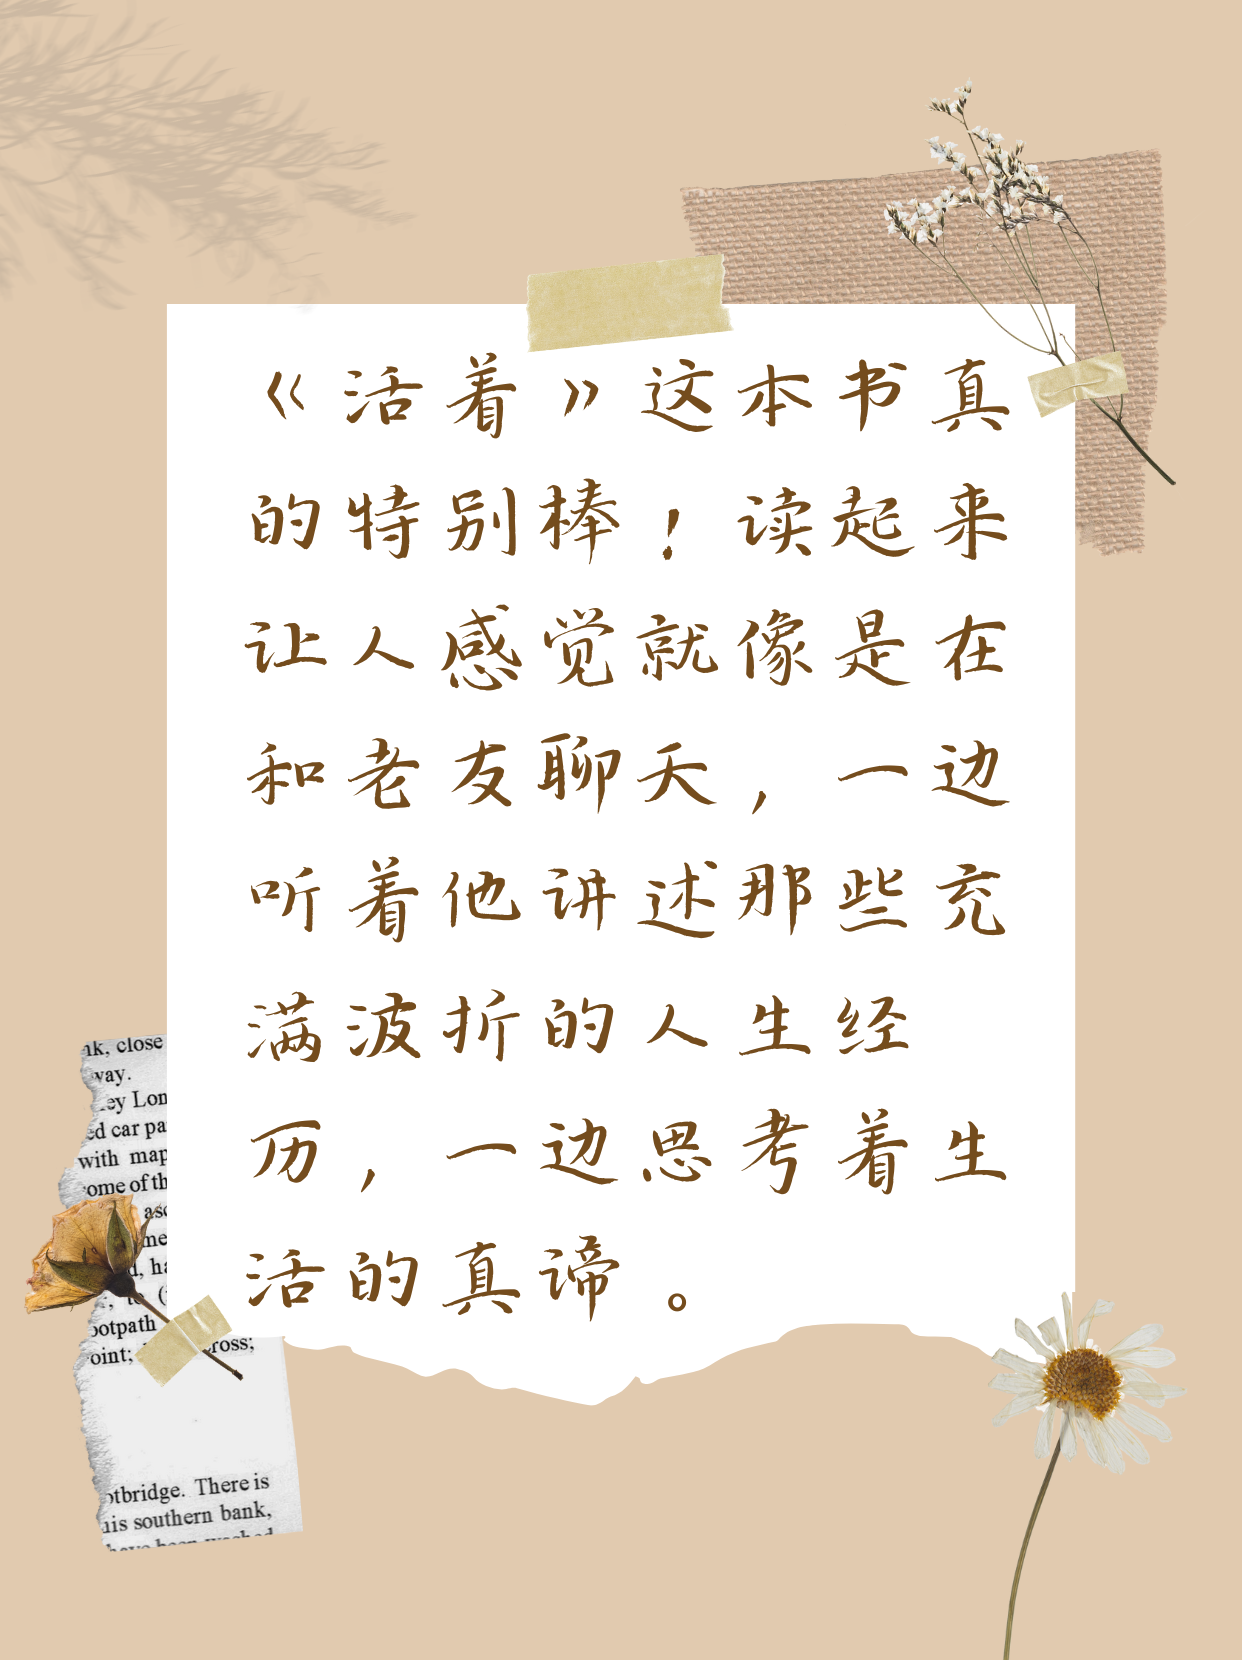 《活着》这本书真
的特别棒！读起来
让人感觉就像是在
和老友聊天，一边
听着他讲述那些充
满波折的人生经
历，一边思考着生
活的真谛。
close
way.
ey Lon
ed car pa
with map
ome of th
asc
me
ha
to
ootpath
oint; ross;
otbridge. There is
his southern bank,
have been washed